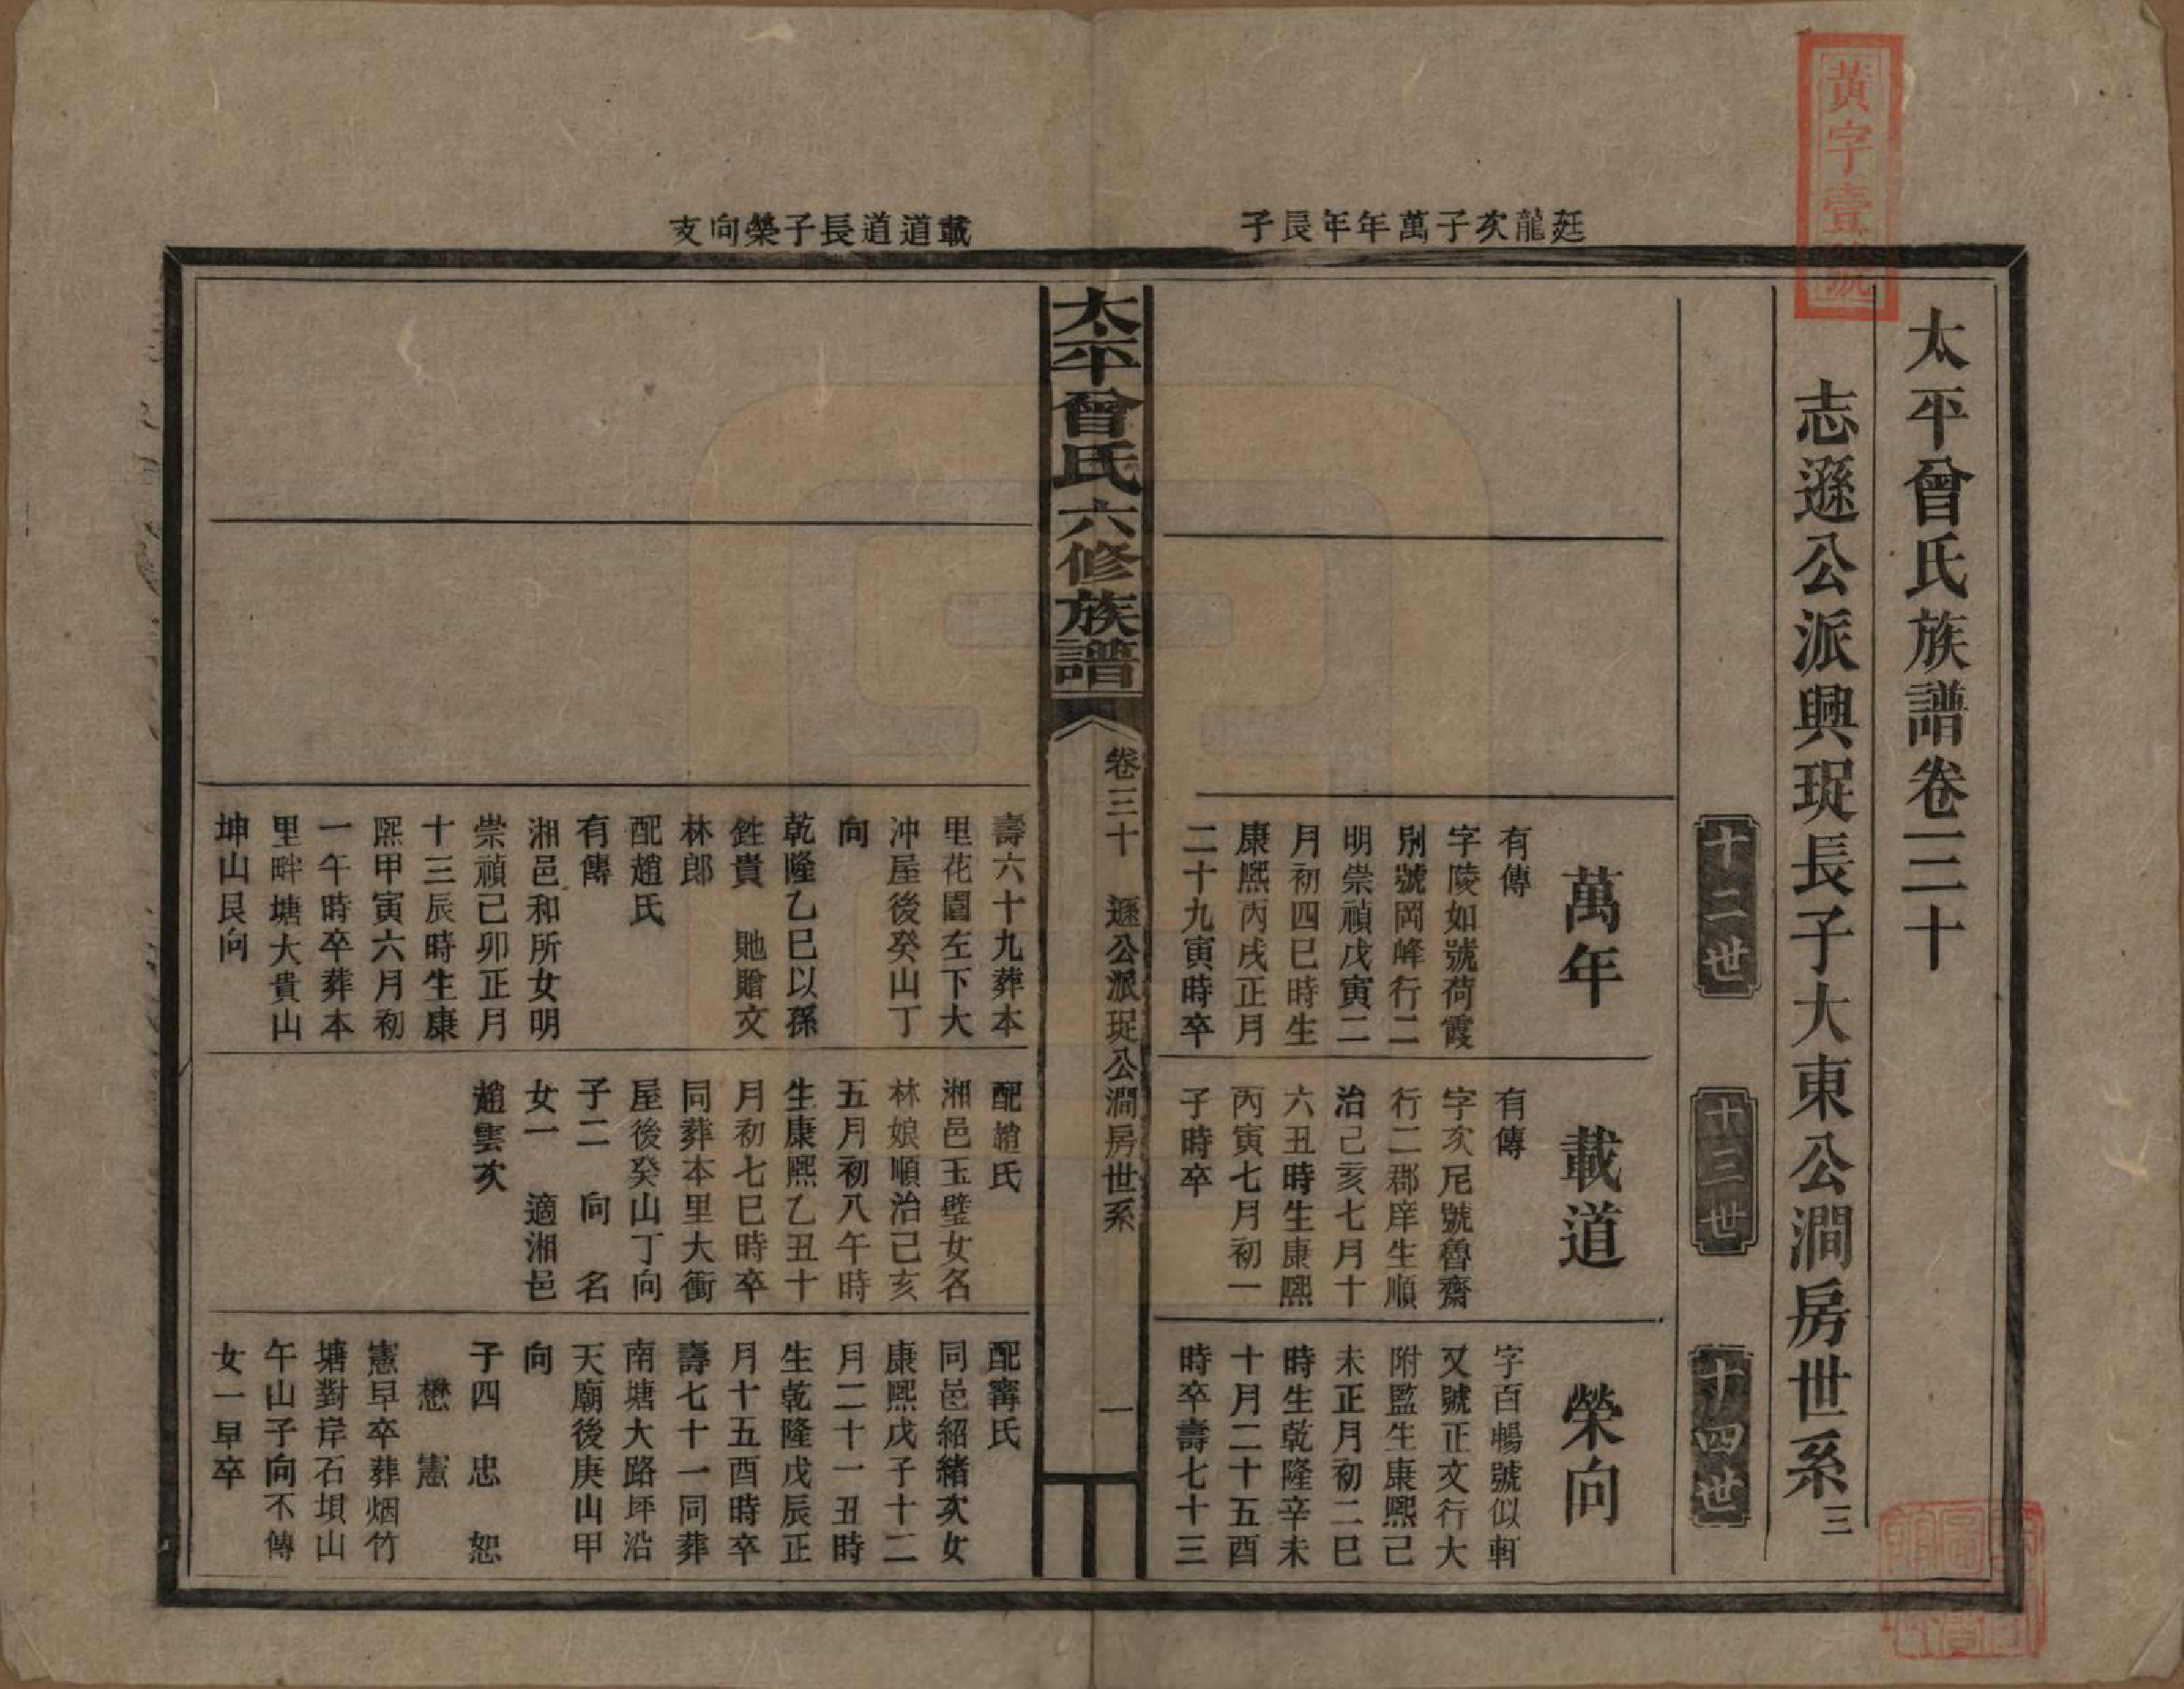 黃字壹號
廷龍次子萬年年長子
載道道長子榮向支
太平曾氏族譜卷三十
志遜公派興珽長子大東公澗房世系三
十二世
十三世
十四世
萬年
有傳
字陵如號荷霞
別號岡峰行二
明崇禎戊寅二
月初四巳時生
康熙丙戌正月
二十九寅時卒
載道
有傳
字亥尼號魯齋
行二郡庠生順
治己亥七月十
六丑時生康熙
丙寅七月初一
子時卒
榮向
字百暢號似軒
又號正文行大
附監生康熙己
未正月初二巳
時生乾隆辛未
十月二十五酉
時卒壽七十三
太平曾氏六修族譜
卷三十 遜公派珽公澗房世系
一
壽六十九葬本
里花園左下大
冲屋後癸山丁
向
乾隆乙巳以孫
甡貴 貤贈文
林郎
配趙氏
有傳
湘邑和所女明
崇禎己卯正月
十三辰時生康
熙甲寅六月初
一午時卒葬本
里畔塘大貴山
坤山艮向
配趙氏
湘邑玉璧女名
林娘順治己亥
五月初八午時
生康熙乙丑十
月初七巳時卒
同葬本里大衝
屋後癸山丁向
子二 向 名
女一 適湘邑
趙雲次
配甯氏
同邑紹緒次女
康熙戊子十二
月二十一丑時
生乾隆戊辰正
月十五酉時卒
壽七十一同葬
南塘大路坪沿
天廟後庚山甲
向
子四 忠 恕
懋 憲
憲早卒葬烟竹
塘對岸石埧山
午山子向不傳
女一早卒